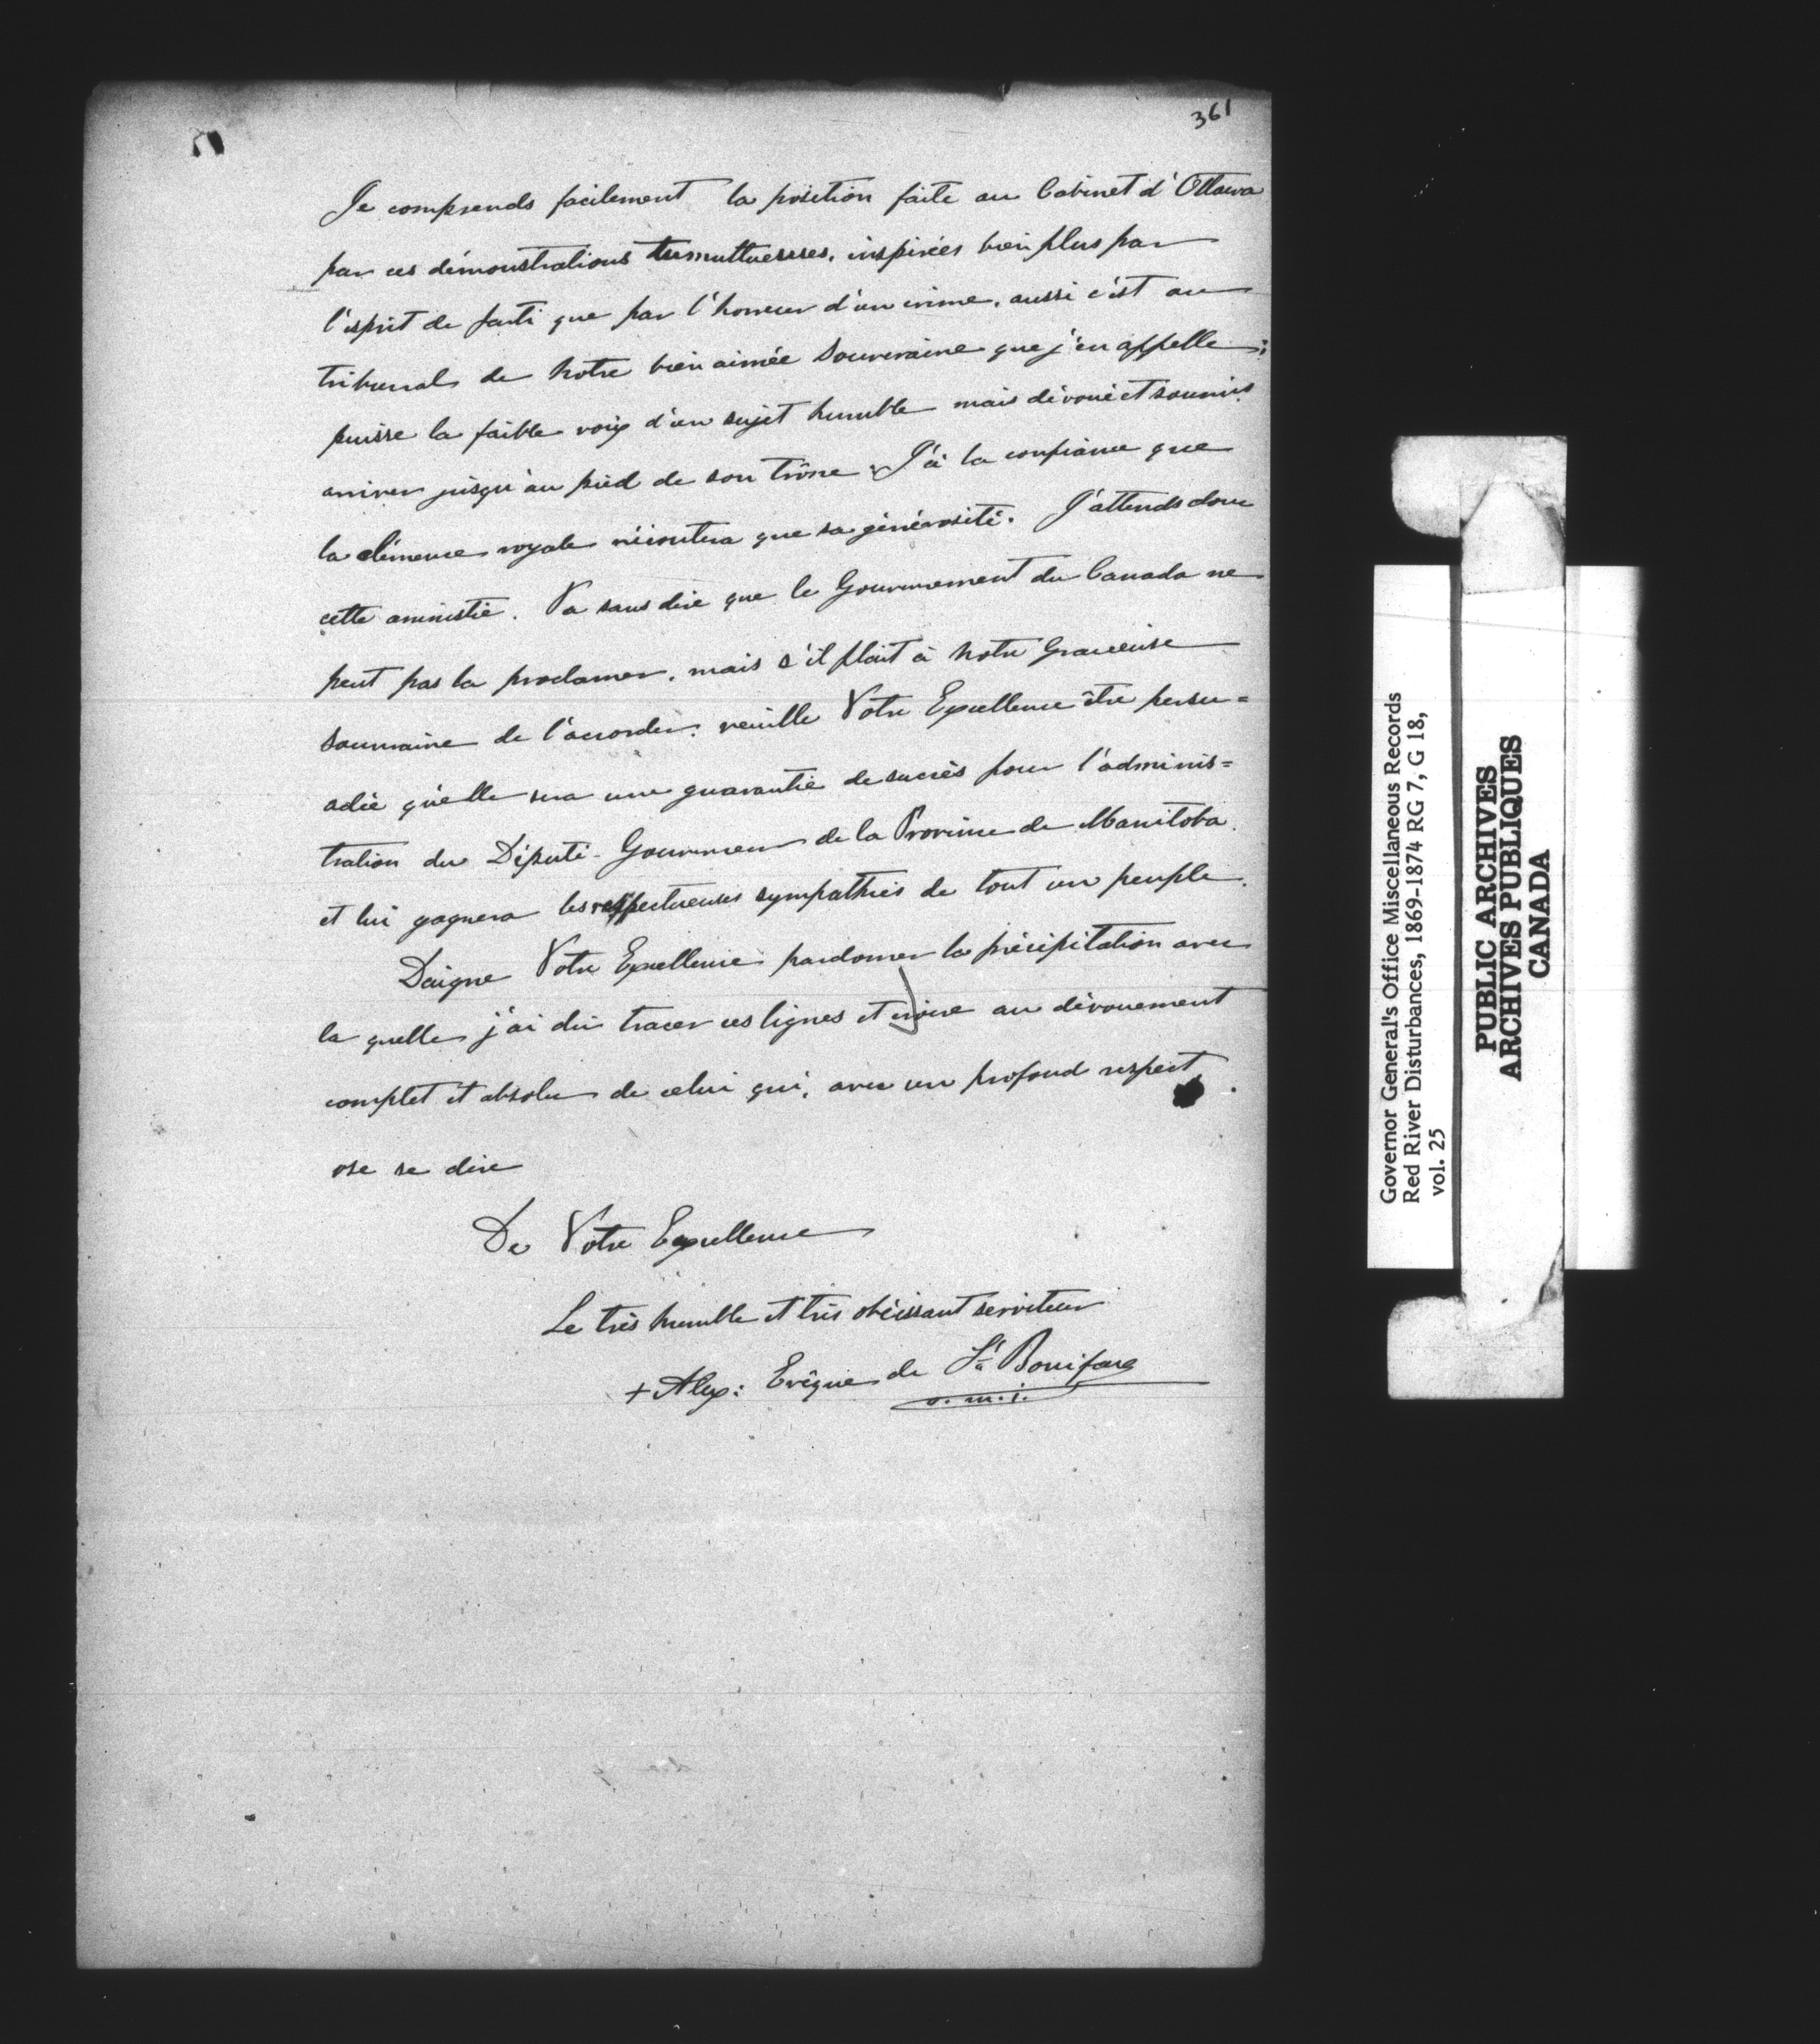 361
Je comprends facilement la position faite au Cabinet d'Ottawa
par ces démonstrations tumultueuses, inspirées bien plus par
l'esprit de parti que par l'horreur d'un crime, aussi c'est au
tribunal de notre bien aimée Souveraine que j'en appelle;
puisse la faible voix d'un sujet humble mais dévoué et soumis
arriver jusqu'au pied de son trône. J'ai la confiance que
la clémence royale n'écoutera que sa générosité. J'attends donc
cette amnistie. Va sans dire que le Gouvernement du Canada ne
peut pas la proclamer, mais s'il plait à notre Gracieuse
Souveraine de l'accorder, veuille Votre Excellence être persu=
adée qu'elle sera une guarantie de succès pour l'adminis=
tration du Député-Gouverneur de la Province de Manitoba
et lui gagnera les respectueuses sympathies de tout un peuple.
Daigne Votre Excellence pardonner la précipitation avec
la quelle j'ai dû tracer ces lignes et croire au dévouement
complet et absolu de celui qui, avec un profond respect,
ose se dire
De Votre Excellence
Le très humble et très obéissant serviteur
+ Alex: Evêque de St Boniface
o.m.i.
Governor General's Office Miscellaneous Records
Red River Disturbances, 1869-1874 RG 7, G 18,
vol. 25
PUBLIC ARCHIVES
ARCHIVES PUBLIQUES
CANADA